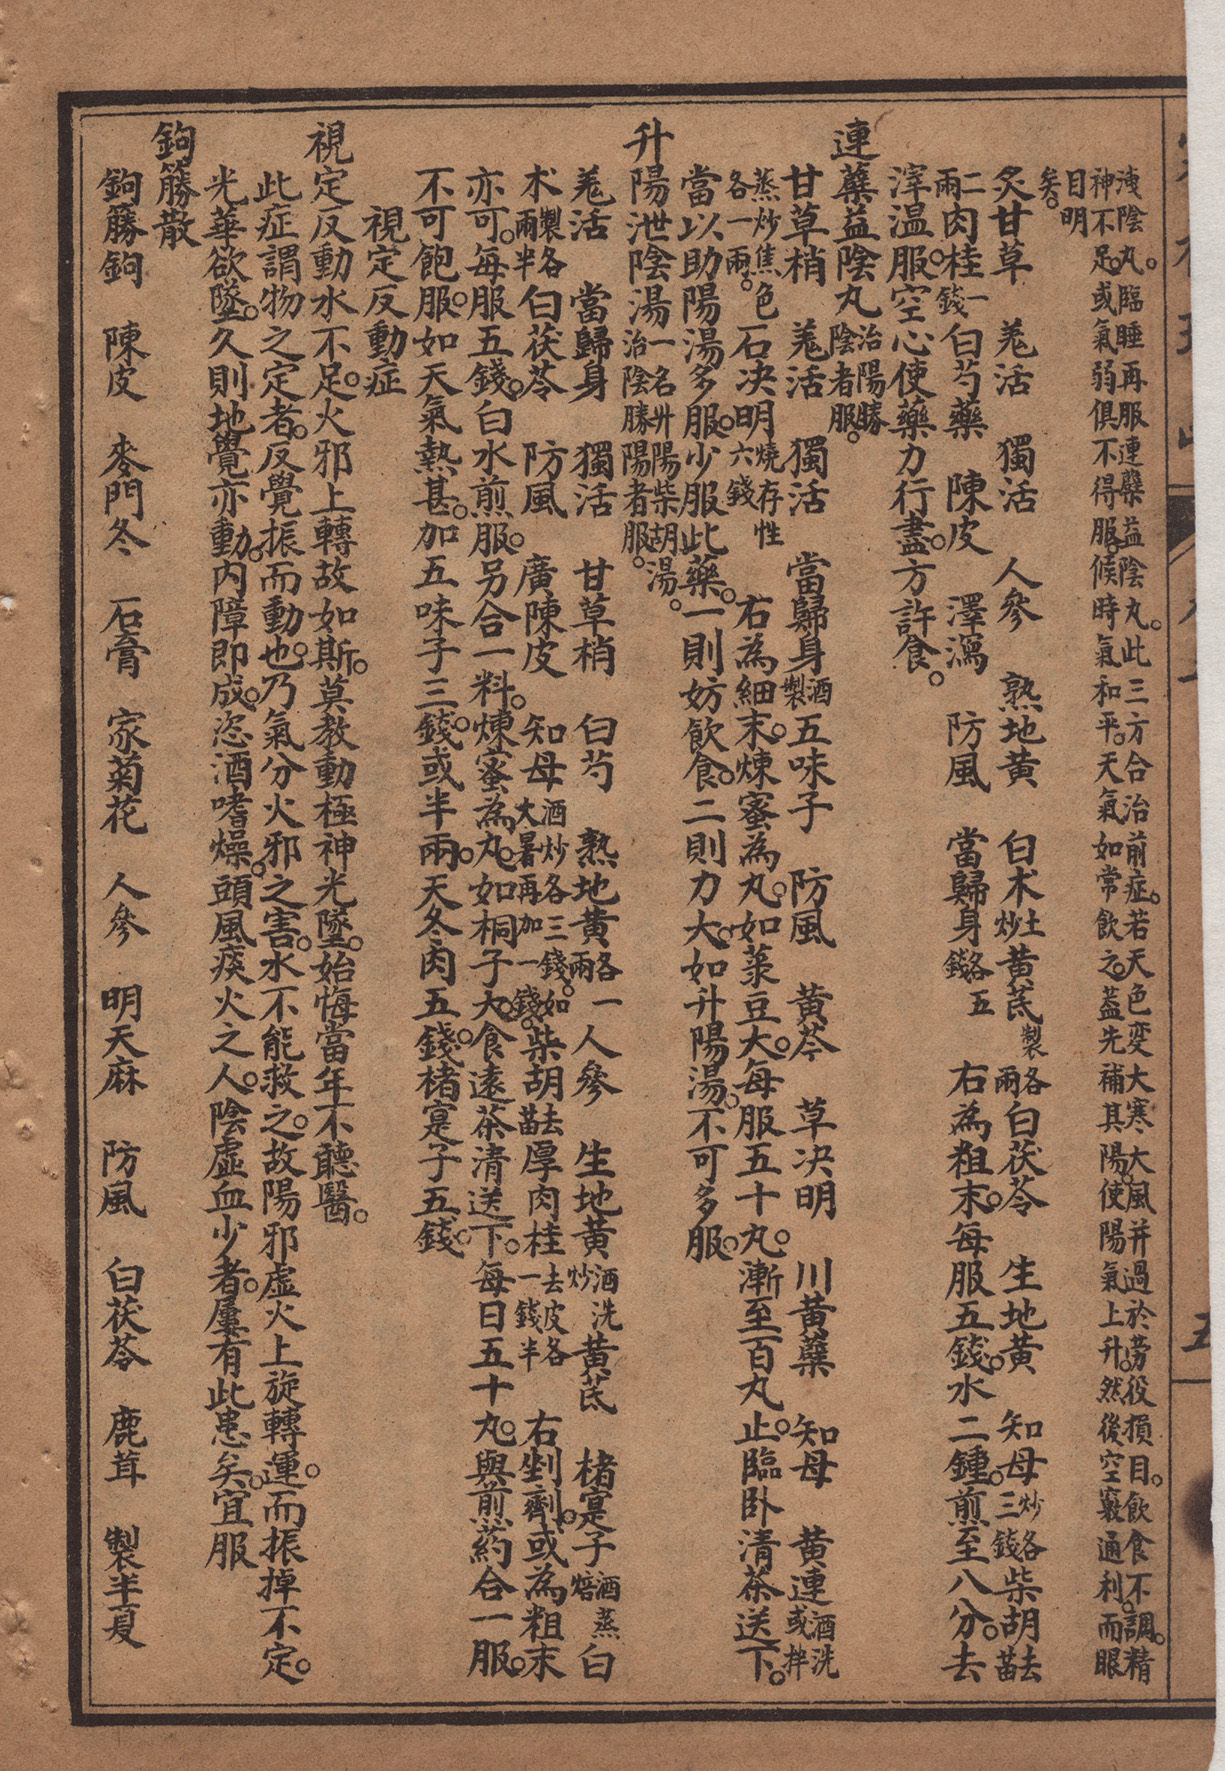 洩陰丸。臨睡再服連蘗益陰丸。此三方合治前症。若天色變大寒大風并過於勞役損目。飲食不調。精
神不足。或氣弱俱不得服。候時氣和平。天氣如常飲之。葢先補其陽。使陽氣上升。然後空竅通利。而眼
目明
矣。
炙甘草　羗活　獨活　人參　熟地黄　白术土炒　黄茋製各兩　白茯苓　生地黄　知母炒各三錢　柴胡去苗
二兩　肉桂一錢　白芍藥　陳皮　澤瀉　防風　當歸身各五錢　右為粗末。每服五錢。水二鍾。煎至八分。去
滓温服。空心使藥力行盡。方許食。
連蘗益陰丸治陽勝陰者服。
甘草梢　羗活　獨活　當歸身酒製　五味子　防風　黄芩　草决明　川黄蘗　知母　黄連酒洗或拌
蒸炒焦色各一兩。　石决明燒存性六錢　右為細末。煉蜜為丸。如菉豆大。每服五十丸。漸至百丸止。臨卧清茶送下。
當以助陽湯多服。少服此藥。一則妨飲食。二則力大。如升陽湯。不可多服。
升陽泄陰湯一名升陽柴胡湯。治陰勝陽者服。
羗活　當歸身　獨活　甘草梢　白芍　熟地黄各一兩　人參　生地黄酒洗炒　黄茋　楮寔子酒蒸焙　白
术製各兩半　白茯苓　防風　廣陳皮　知母酒炒各三錢。如大暑再加一錢。　柴胡去苗　厚肉桂去皮各一錢半　右剉劑。或為粗末
亦可。每服五錢。白水煎服。另合一料。煉蜜為丸。如桐子大。食遠茶清送下。每日五十丸。與煎药合一服。
不可飽服。如天氣熱甚。加五味子三錢。或半兩。天冬肉五錢。楮寔子五錢。
視定反動症
視定反動水不足。火邪上轉故如斯。莫教動極神光墜。始悔當年不聽醫。
此症謂物之定者。反覺振而動也。乃氣分火邪之害。水不能救之。故陽邪虛火上旋轉運。而振掉不定。
光華欲墜。久則地覺亦動。内障即成。恣酒嗜燥。頭風痰火之人。陰虛血少者。屢有此患矣。宜服
鉤籐散
鉤籐鉤　陳皮　麥門冬　石膏　家菊花　人參　明天麻　防風　白茯苓　鹿茸　製半夏